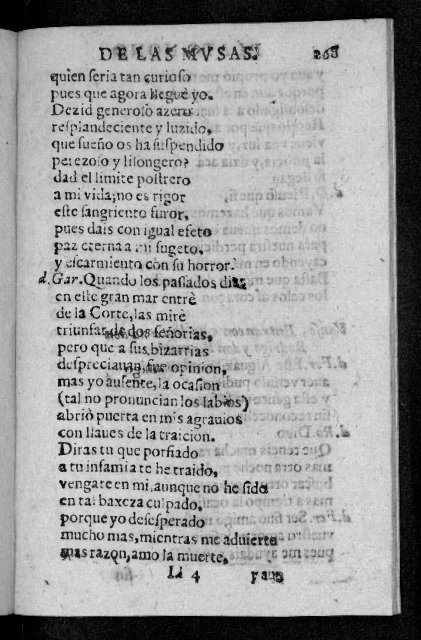 DE LAS MVSAS. 268
quien seria tan curioso
pues que agora llegue yo.
Dezid generoso azero
resplandeciente y luzido,
que sueño os ha suspendido
perezoso y lisongero?
dad el limite postrero
a mi vida, no es rigor
este sangriento furor,
pues dais con igual efeto
paz eterna a mi sugeto,
y escarmiento con su horror.
d. Gar. Quando los passados dias
en este gran mar entrè
de la Corte, las mirè
triunfar de dos señorias,
pero que a sus bizarrias
despreciauan su opinion,
mas yo ausente, la ocasion
(tal no pronuncian los labios)
abriò puerta en mis agrauios
con llaues de la traicion.
Diras tu que porfiado
a tu infamia te he traido,
vengate en mi, aunque no he sido
en tal baxeza culpado,
porque yo desesperado
mucho mas, mientras me aduierte
mas razon, amo la muerte,
Ll 4 y aun